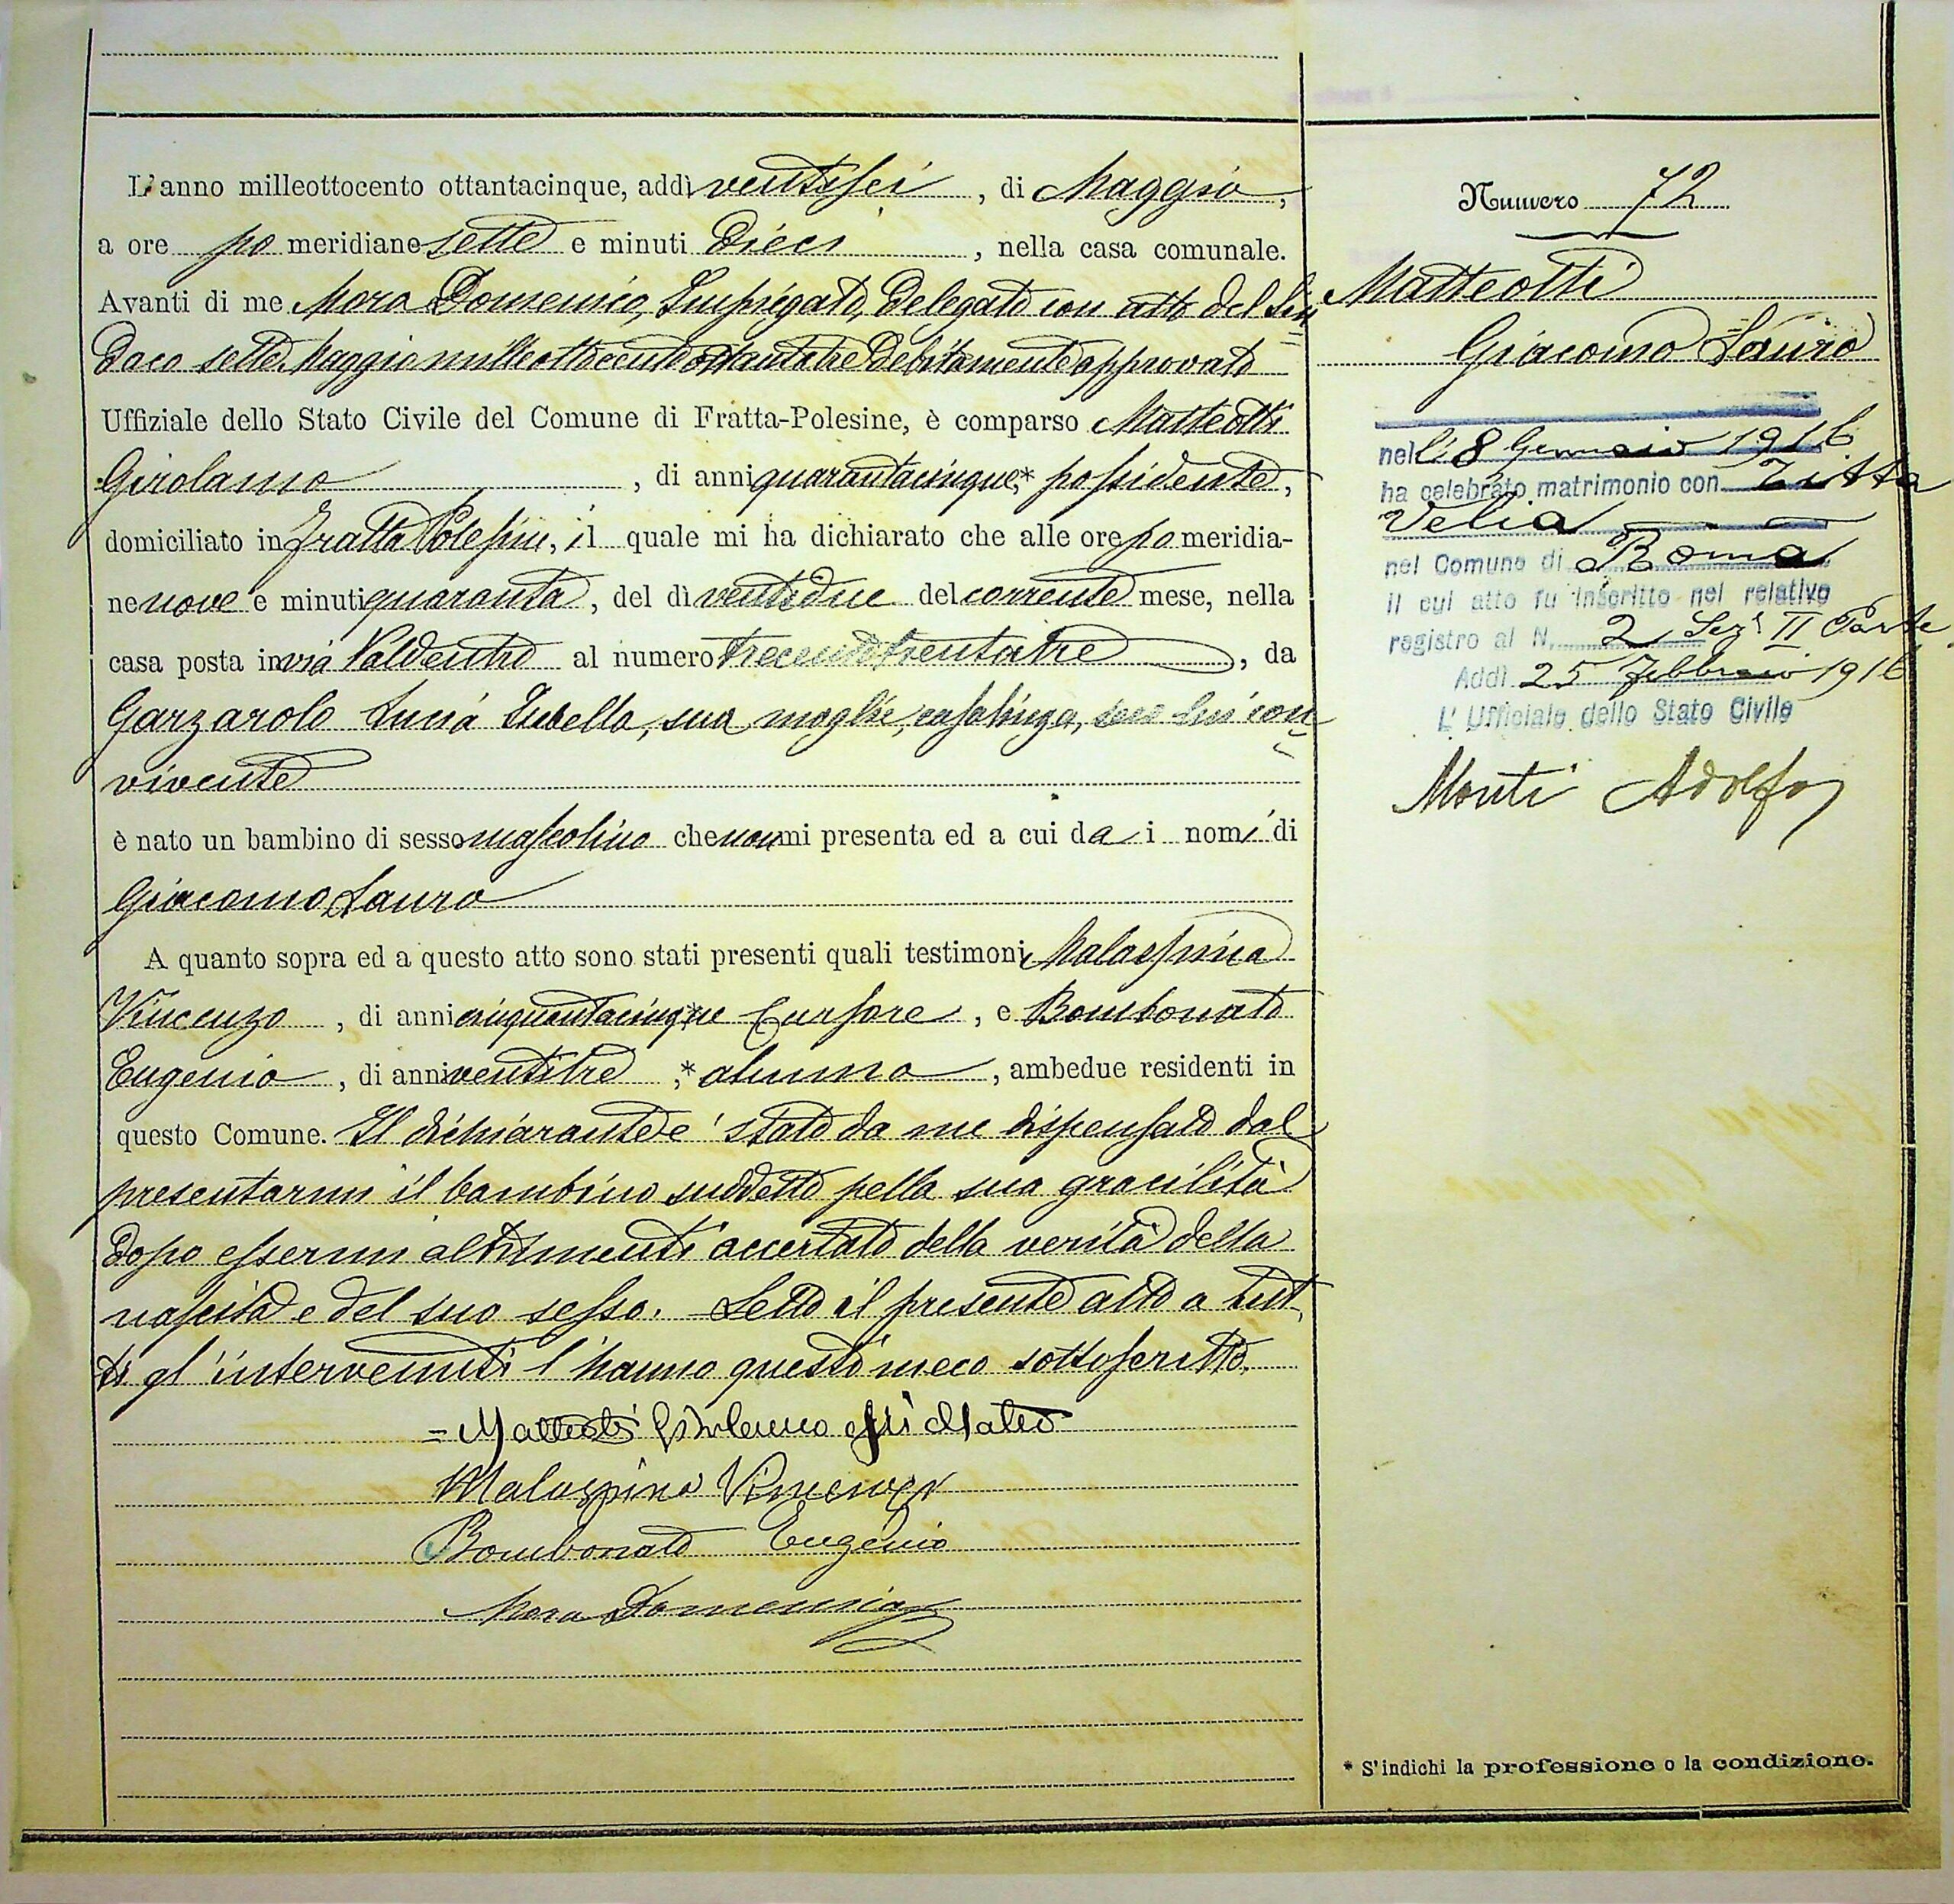 L'anno milleottocento ottantacinque, addì ventisei, di Maggio,
a ore po meridiane sette e minuti dieci, nella casa comunale.
Avanti di me Mora Domenico, Impiegato, delegato con atto del Sin
daco sette Maggio milleottocentottantatre debitamente approvato
Uffiziale dello Stato Civile del Comune di Fratta-Polesine, è comparso Matteotti
Girolamo, di anni quarantacinque,* possidente,
domiciliato in Fratta Polesine, il quale mi ha dichiarato che alle ore po meridia-
ne nove e minuti quaranta, del dì ventidue del corrente mese, nella
casa posta in via Valdentro al numero trecentotrentatre, da
Garzarolo Lucia Isabella, sua moglie, casalinga, seco lui con
vivente
è nato un bambino di sesso mascolino che non mi presenta ed a cui da i nomi di
Giacomo Lauro
A quanto sopra ed a questo atto sono stati presenti quali testimoni Malaspina
Vincenzo, di anni cinquantacinque * Cursore, e Bombonato
Eugenio, di anni ventitre,* alunno, ambedue residenti in
questo Comune. Il dichiarante e' stato da me dispensato dal
presentarmi il bambino suddetto pella sua gracilità
dopo essermi altrimenti accertato della verità della
nascita e del suo sesso. Letto il presente atto a tut
ti gl'intervenuti l'hanno questi meco sottoscritto.
= Matteotti Girolamo Matteo
Malaspina Vincenzo
Bombonato Eugenio
Mora Domenico
Numero 72
Matteotti
Giacomo Lauro
nell'8 Gennaio 1916
ha celebrato matrimonio con Titta
Velia
nel Comune di Roma
il cui atto fu inscritto nel relativo
registro al N. 2 Sez. II Parte
Addì 25 Febbraio 1916
L' Ufficiale dello Stato Civile
Monti Adolfo
* S'indichi la professione o la condizione.